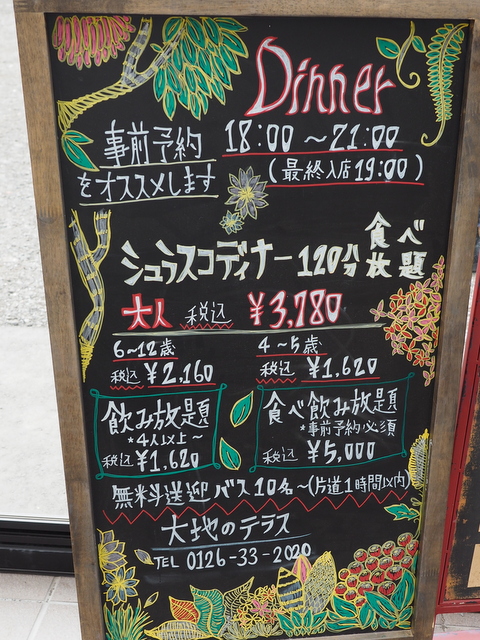 Dinner
事前予約
をオススメします
18:00 ～21:00
(最終入店19:00)
シュラスコディナー120分食べ放題
大人 税込 ¥3,780
6～12歳
税込 ¥2,160
4～5歳
税込 ¥1,620
飲み放題
*4人以上～
税込 ¥1,620
食べ飲み放題
*事前予約必須
税込 ¥5,000
無料送迎バス10名～(片道1時間以内)
大地のテラス
TEL 0126-33-2020